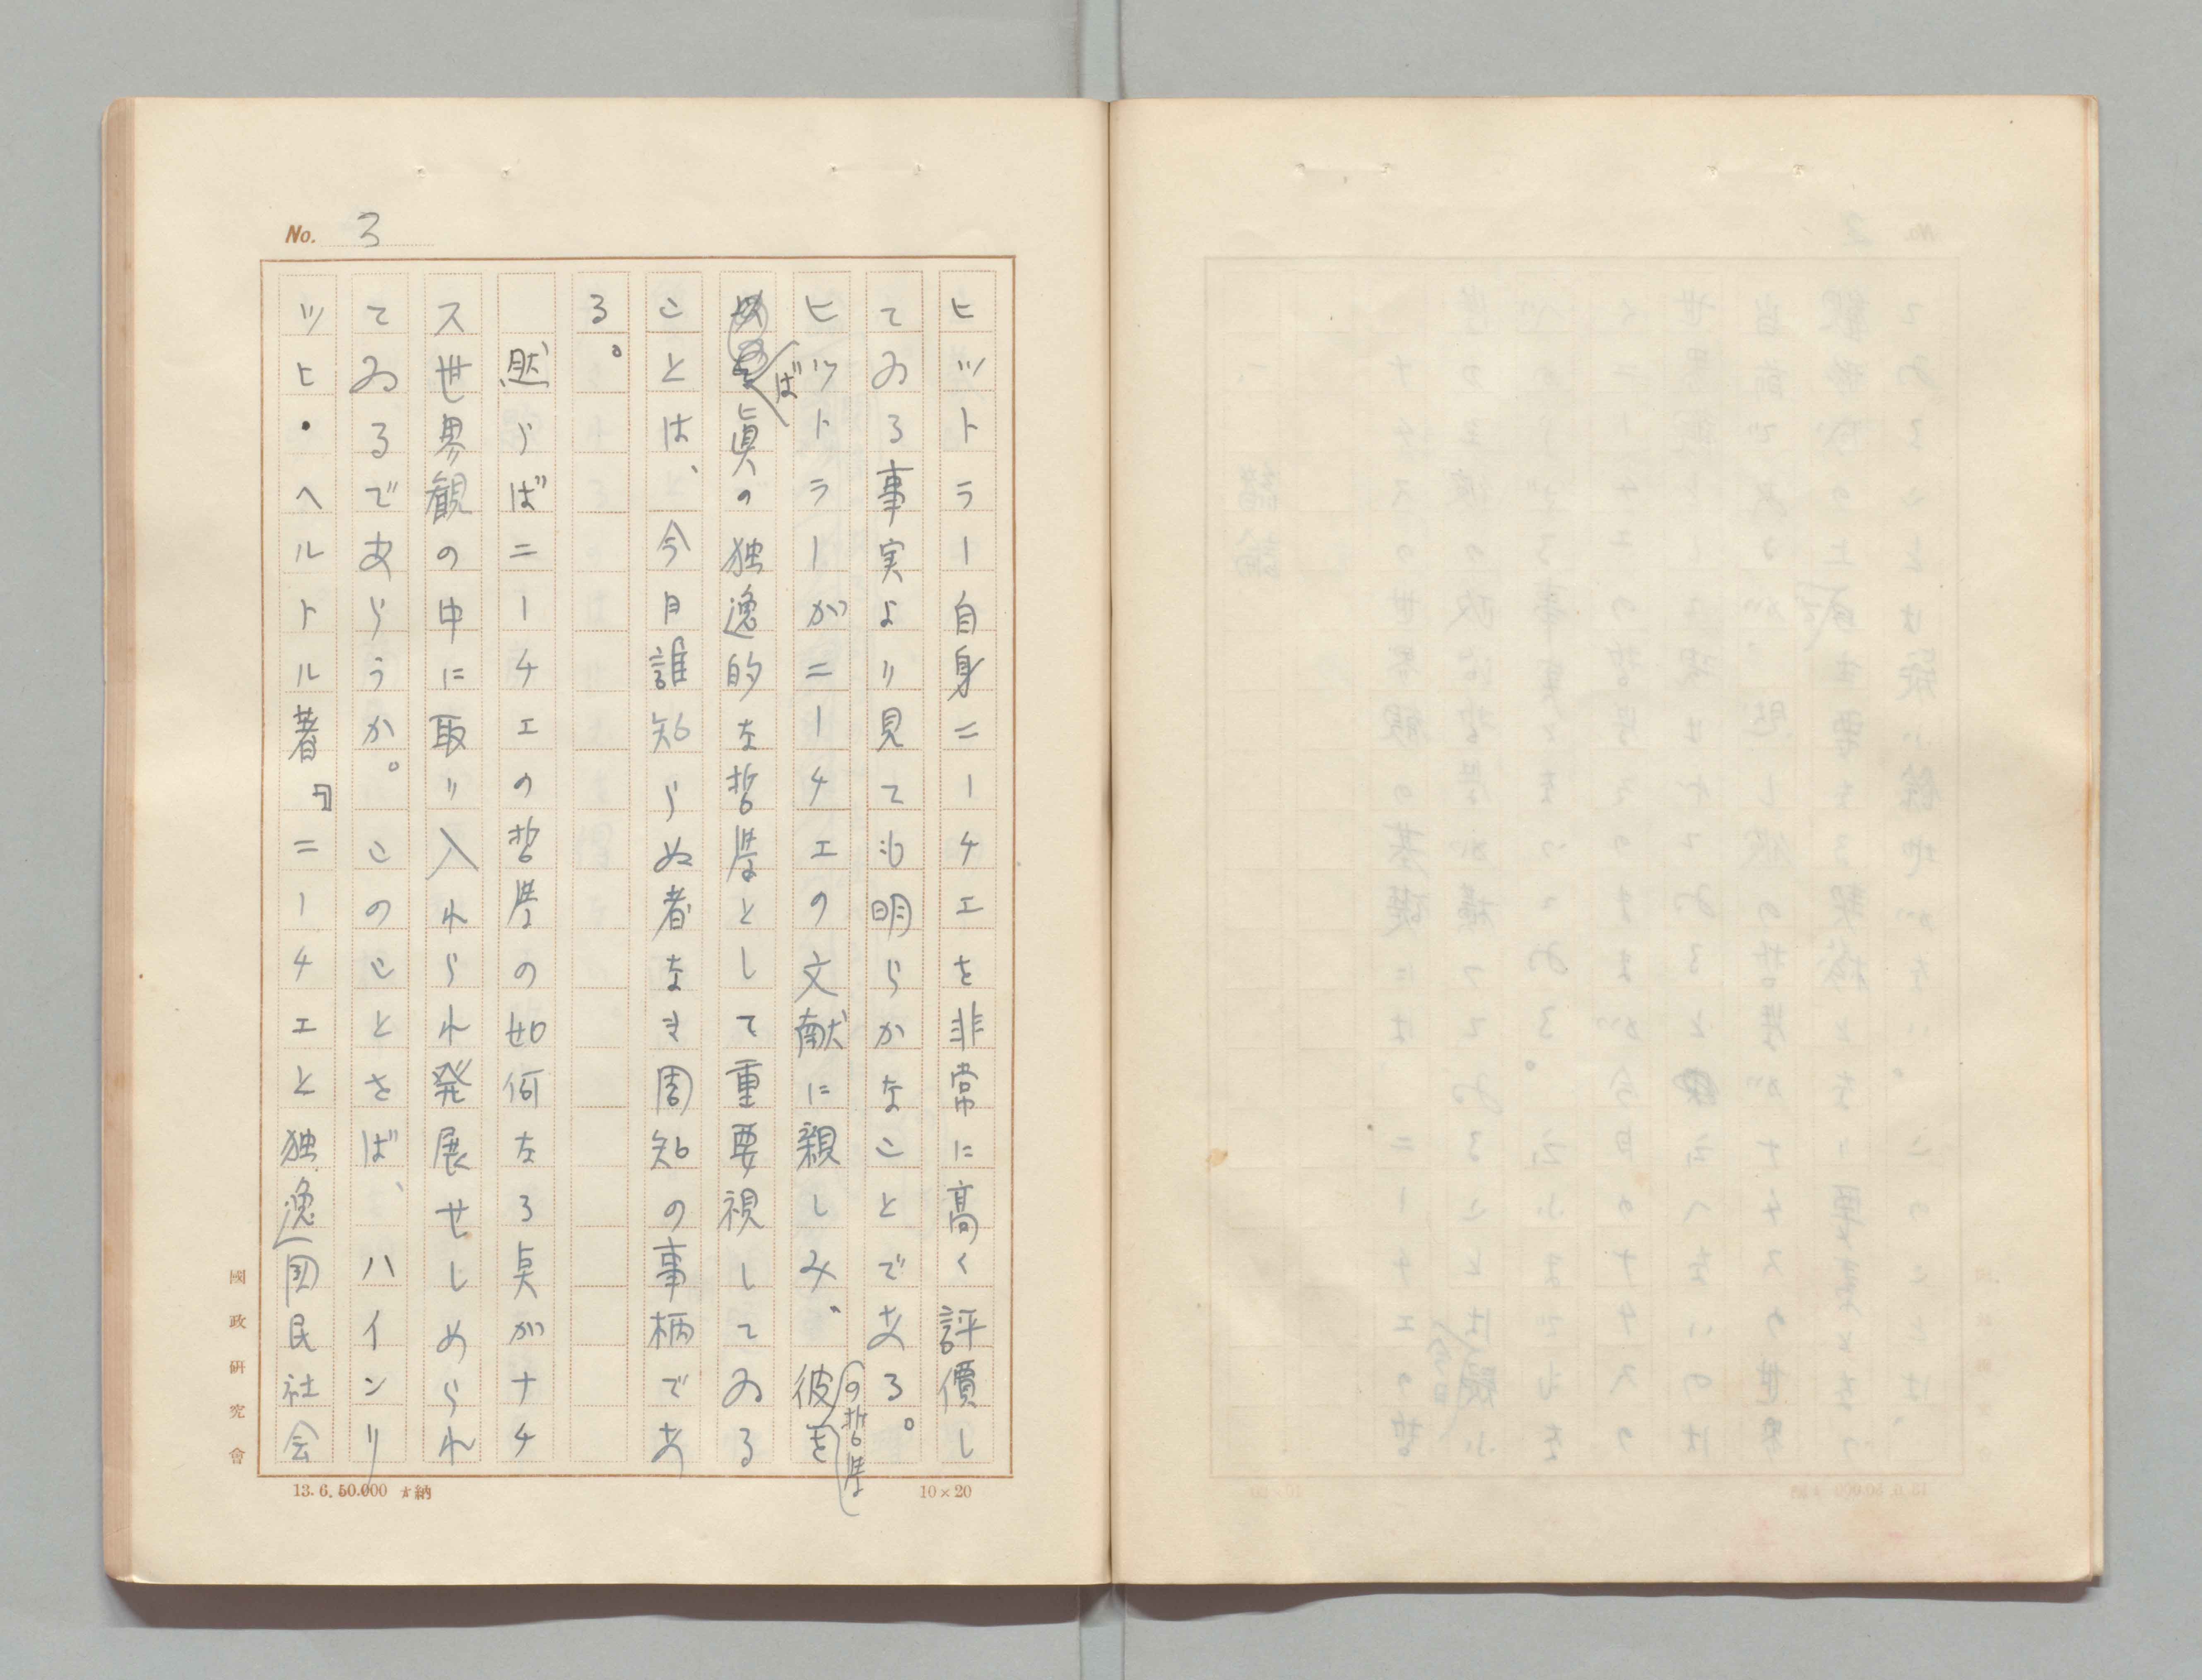 No. 3
ヒットラー自身ニーチエを非常に高く評價し
てゐる事実より見ても明らかなことである。
ヒットラーがニーチエの文献に親しみ、彼の哲学を
ば眞の独逸的な哲学として重要視してゐる
ことは、今日誰知らぬ者なき周知の事柄であ
る。
然らばニーチエの哲学の如何なる点がナチ
ス世界観の中に取り入れられ発展せしめられ
てゐるであらうか。このことをば、ハインリ
ッヒ・ヘルトル著『ニーチエと独逸国民社会
國政研究會
13.6.50.000 ★納
10×20